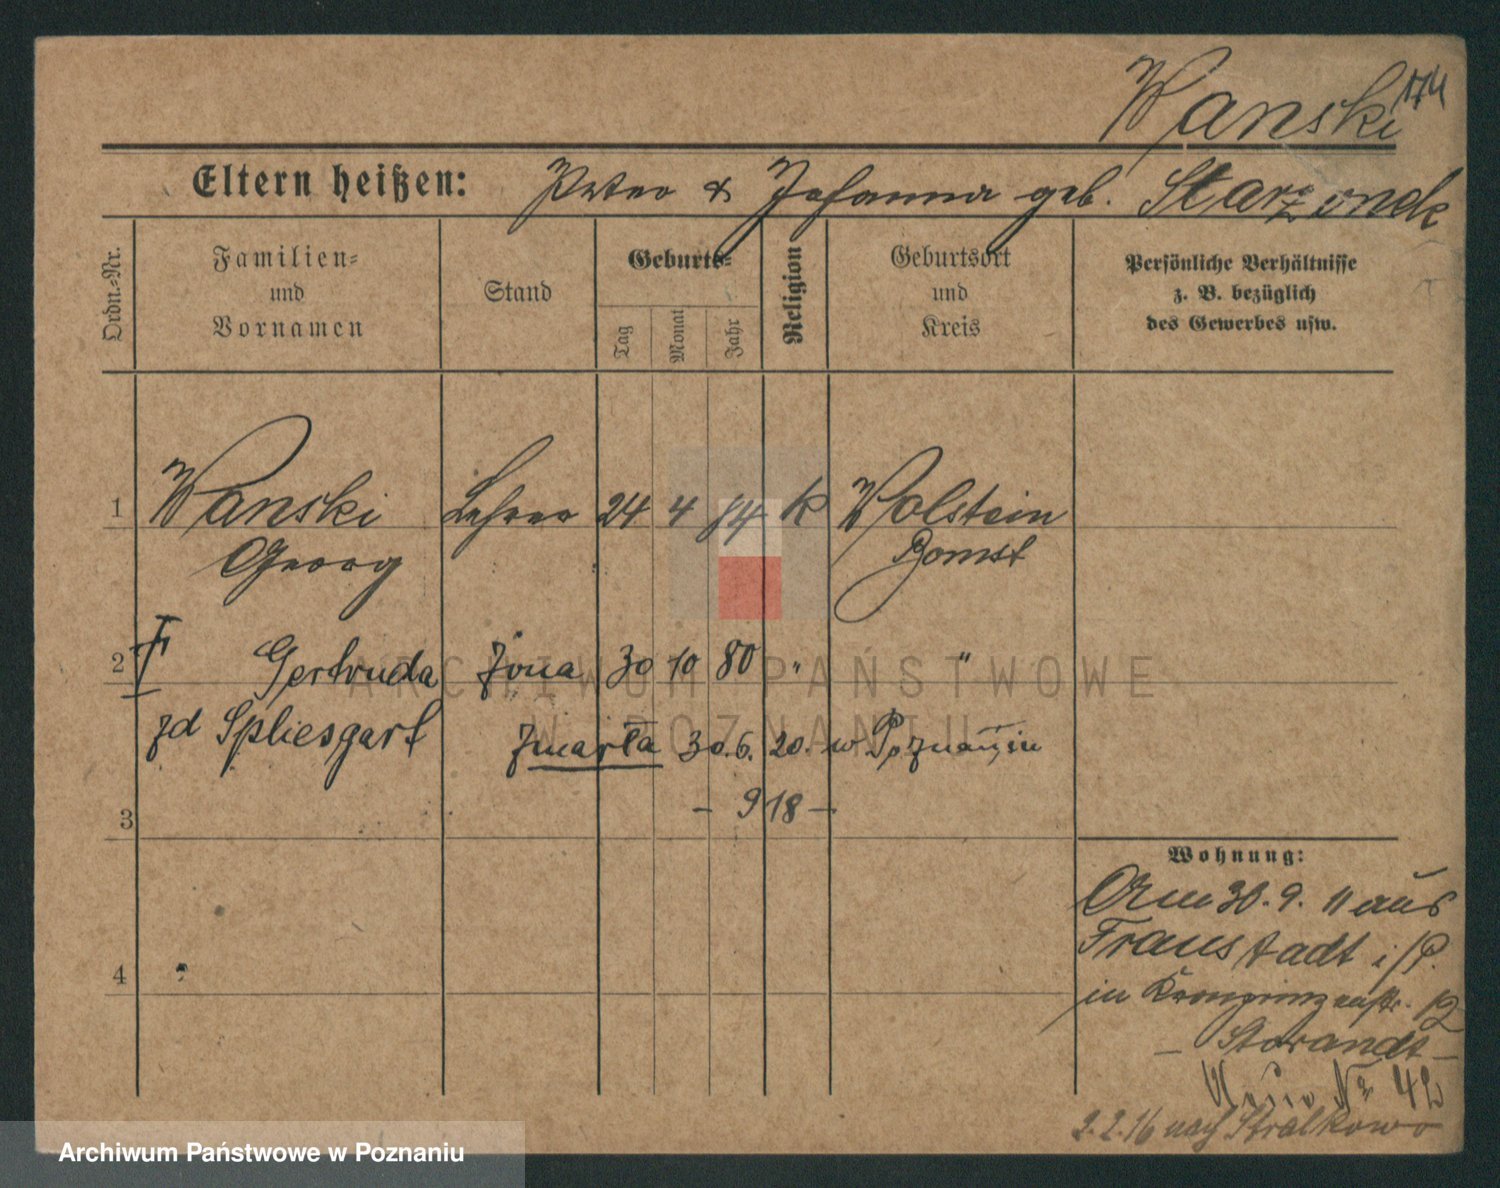 Wanski 174
Eltern heißen: Peter & Johanna geb. Starzonek
Ordn.-Nr.
Familien-
und
Vornamen
Stand
Geburts-
Tag
Monat
Jahr
Religion
Geburtsort
und
Kreis
Persönliche Verhältnisse
z. B. bezüglich
des Gewerbes usw.
1 Wanski Lehrer 24 4 84 k Wolstein
Georg Bomst
2 Gertruda żona 30 10 80 " "
zd Spliesgart zmarła 30.6. 20. w Poznaniu
- 918 -
3
4
Wohnung:
Am 30. 9. 11 aus
Fraustadt i/P.
in Kronprinzenstr. 12
- Storandt -
No 42
2.2.16 nach Stralkowo
ARCHIWUM PAŃSTWOWE
W POZNANIU
Archiwum Państwowe w Poznaniu